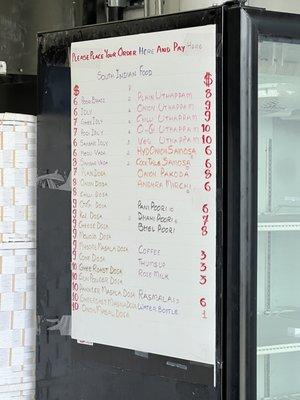 PLEASE PLACE YOUR ORDER HERE AND PAY HERE
SOUTH INDIAN FOOD
$ $
6 POORI BHAJI PLAIN UTHAPPAM 8
6 IDLY ONION UTHAPPAM 9
7 GHEE IDLY CHILLI UTHAPPAM 9
7 PODI IDLY O-G UTHAPPAM 10
6 SAMBAR IDLY VEG UTHAPPAM 10
6 MEDU VADA HYD ONION SAMOSA 6
8 SAMBAR VADA COCKTAIL SAMOSA 6
7 PLAIN DOSA ONION PAKODA 8
8 ONION DOSA ANDHRA MIRCHI 6
8 CHILLI DOSA
9 DOSA PANI POORI 6
9 KAL DOSA DHAHI POORI 7
9 CHEESE DOSA BHEL POORI 8
9 DOSA
9 MASALA DOSA COFFEE 3
9 CONE DOSA THUMSUP 3
10 GHEE ROAST DOSA ROSE MILK 3
10 GUN POWDER DOSA
10 MASALA DOSA RASMALAI 6
10 MASALA DOSA WATER BOTTLE 1
10 ONION MASALA DOSA